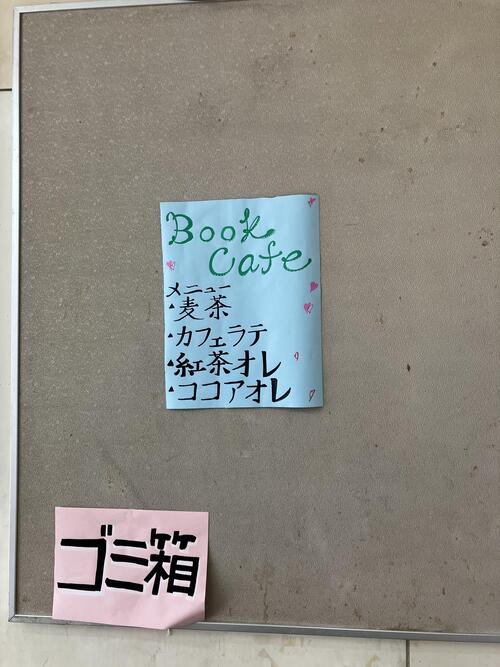 Book
Cafe
メニュー
・麦茶
・カフェラテ
・紅茶オレ
・ココアオレ
ゴミ箱